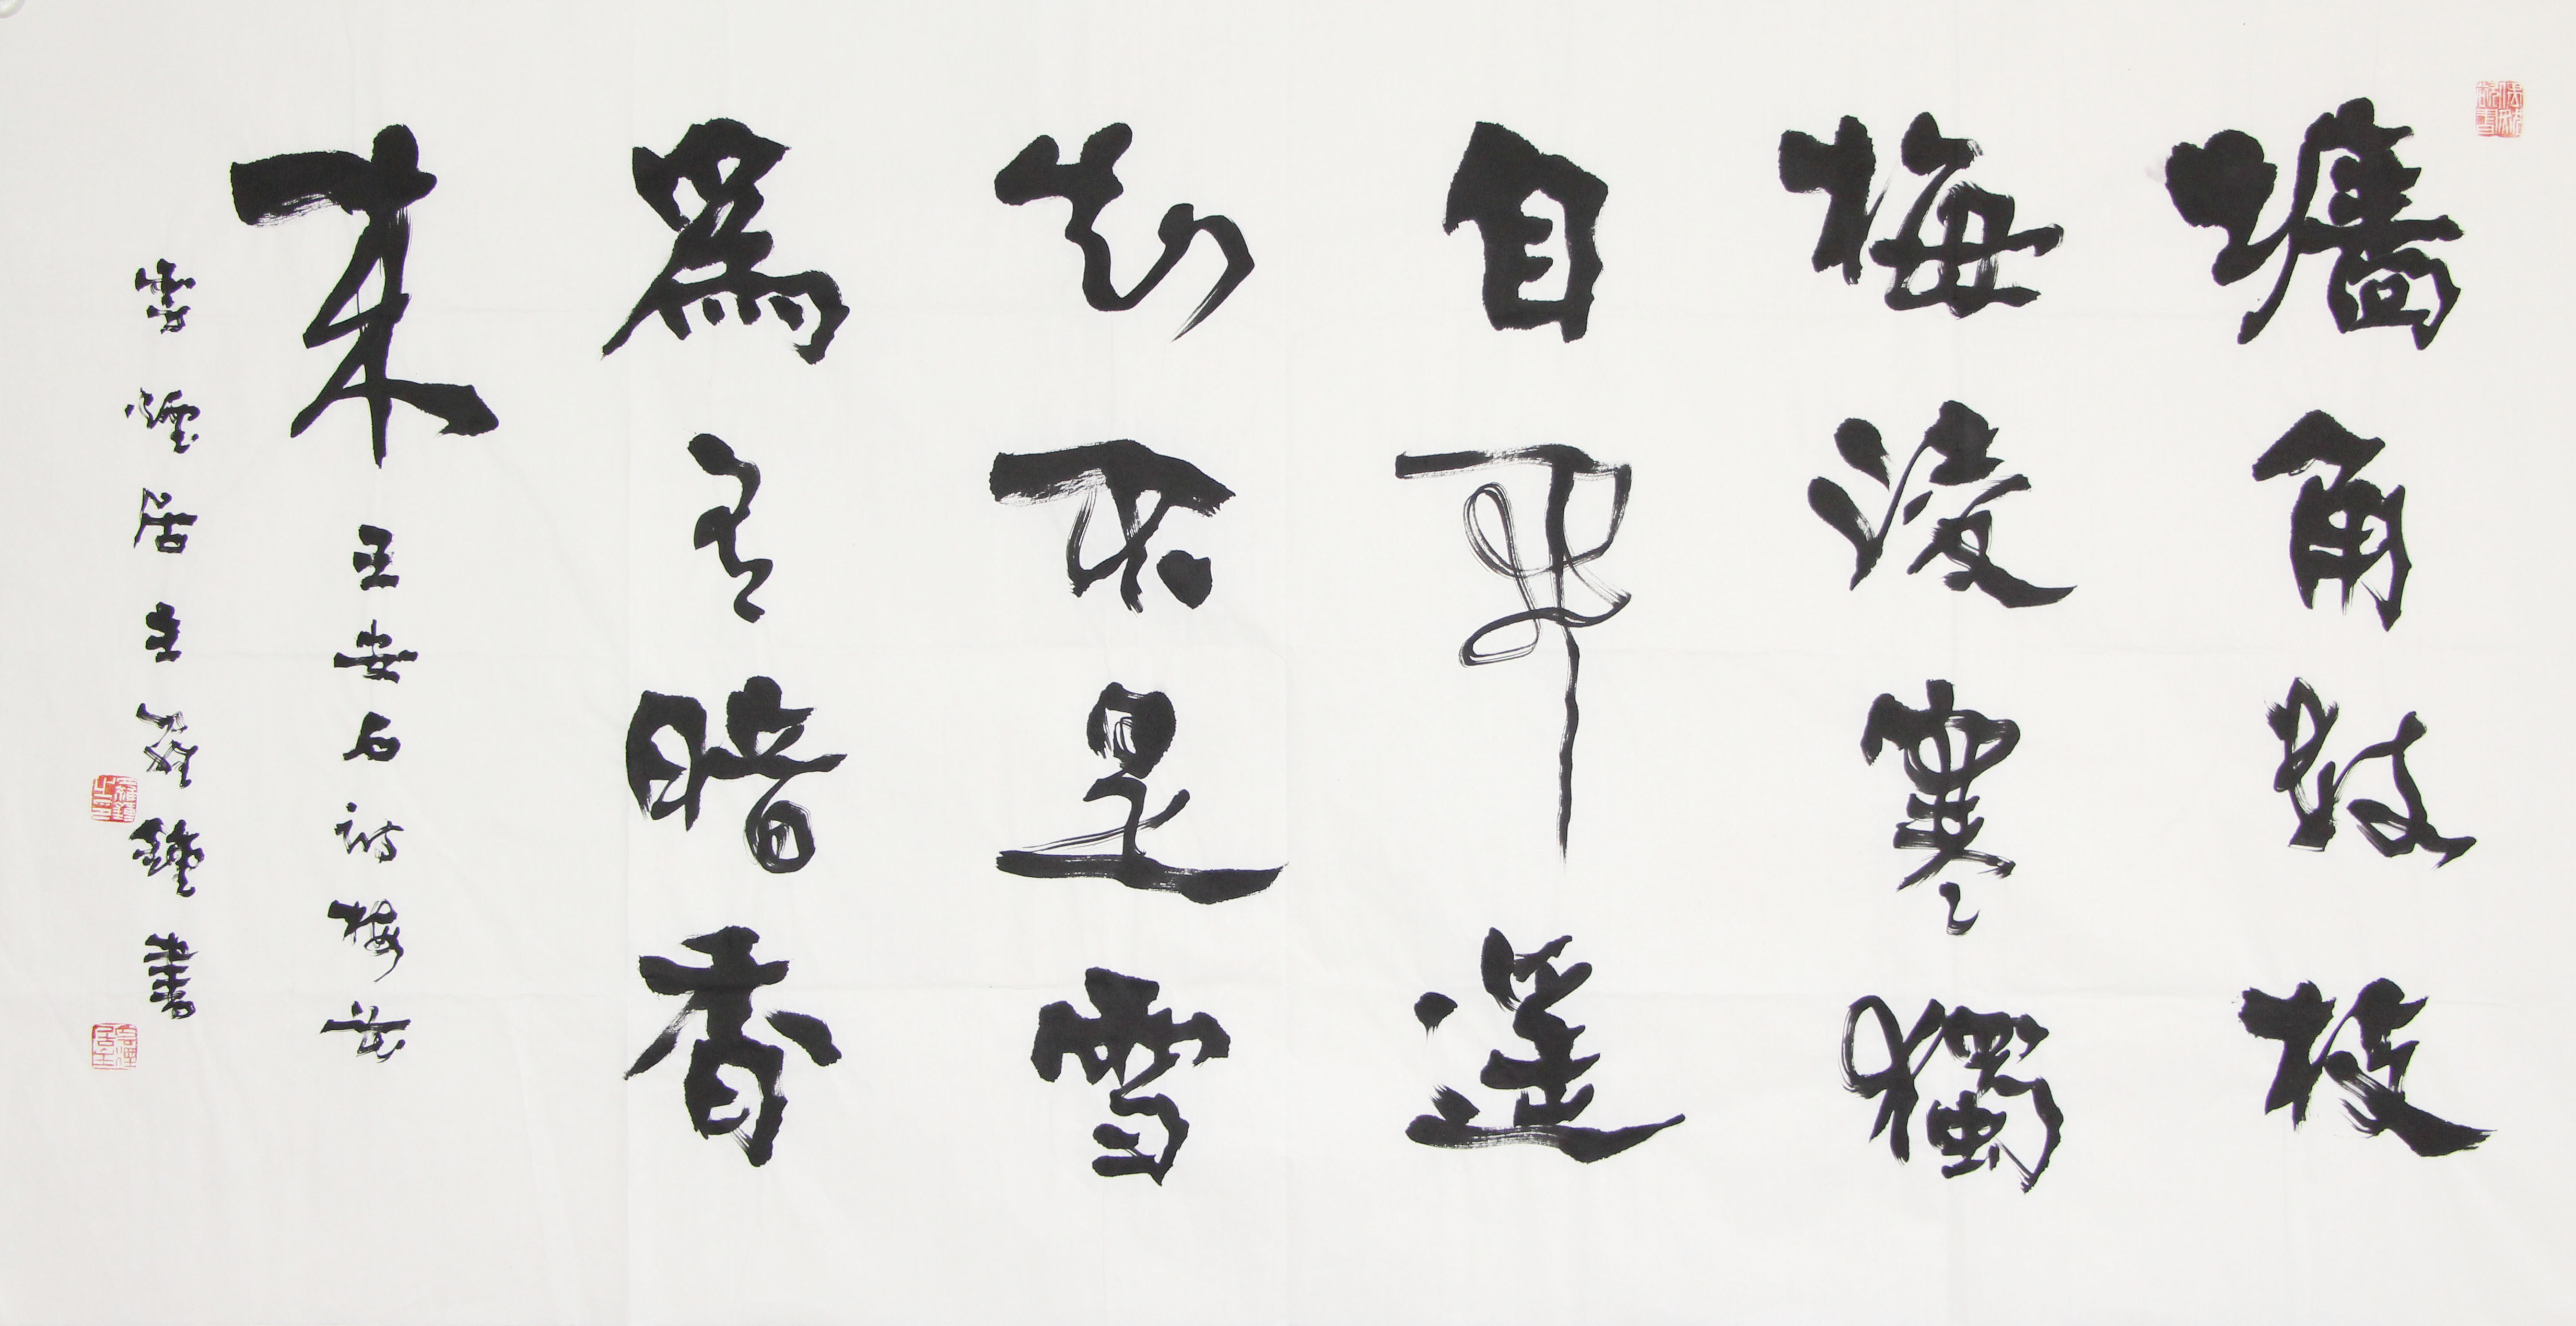 墻角數枝
梅淩寒獨
自開遥
知不是雪
爲有暗香
来 王安石詩梅花
雲煙居主鐘書